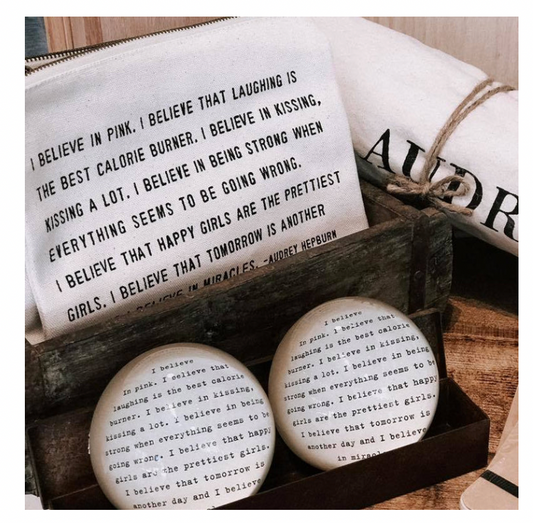 I BELIEVE IN PINK. I BELIEVE THAT LAUGHING IS
THE BEST CALORIE BURNER. I BELIEVE IN KISSING,
KISSING A LOT. I BELIEVE IN BEING STRONG WHEN
EVERYTHING SEEMS TO BE GOING WRONG.
I BELIEVE THAT HAPPY GIRLS ARE THE PRETTIEST
GIRLS. I BELIEVE THAT TOMORROW IS ANOTHER
BELIEVE IN MIRACLES. -AUDREY HEPBURN
AUDR
I believe
in pink. I believe that
laughing is the best calorie
burner. I believe in kissing,
kissing a lot. I believe in being
strong when everything seems to be
going wrong. I believe that happ
girls are the prettiest girls.
I believe that tomorrow is
another day and I believe
I believe
in pink. I believe that
laughing is the best calorie
burner. I believe in kissing,
kissing a lot. I believe in being
strong when everything seems to be
going wrong. I believe that happy
girls are the prettiest girls.
I believe that tomorrow is
another day and I believe
in mirac